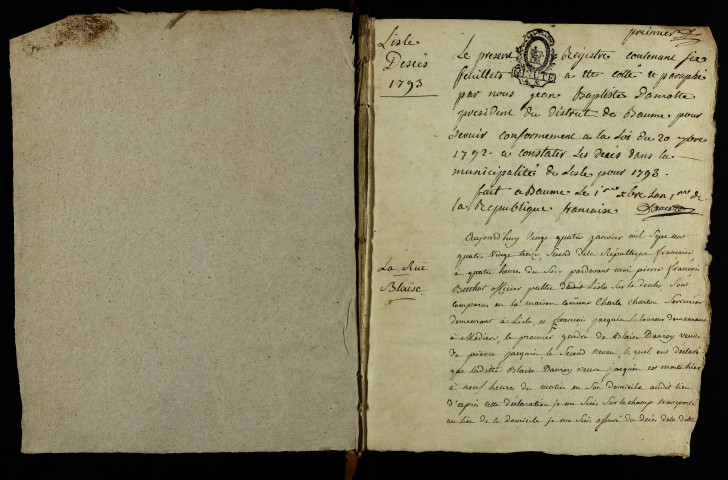 premier
Lisle
Decès
1793
Le present Registre contenant six
feuillets a ete cotté et paraphé
par nous jean Baptiste Damotte
president du district de Baume pour
servir conformement a la Loi du 20 7bre
1792. a constater Les decès dans la
municipalité de Lisle pour 1793.
fait a Baume Le 1er xbre Lan 1er de
la Republique francaise Damotte
La Rüe
Blaise
Aujourd'huy vingt quatre janvier mil sept cent
quatre vingt treize, second de la République francoise
à quatre heures du soir pardevant moi pierre francois
officier public dudit Lisle sur le doubs sont
comparus en la maison commune Charle Serrurier
demeurant à Lisle, et francois jacquin Laboureur demeurant
à Medier, le premier gendre de Blaise veuve
de pierre jacquin le second neveu, lequel ont déclaré
que ladite Blaise veuve jacquin est morte hier
à neuf heures du matin en son domicile audit lieu
d'après cette déclaration je me suis sur le champ transporté
au lieu de ce domicile je me suis assuré du decès de ladite